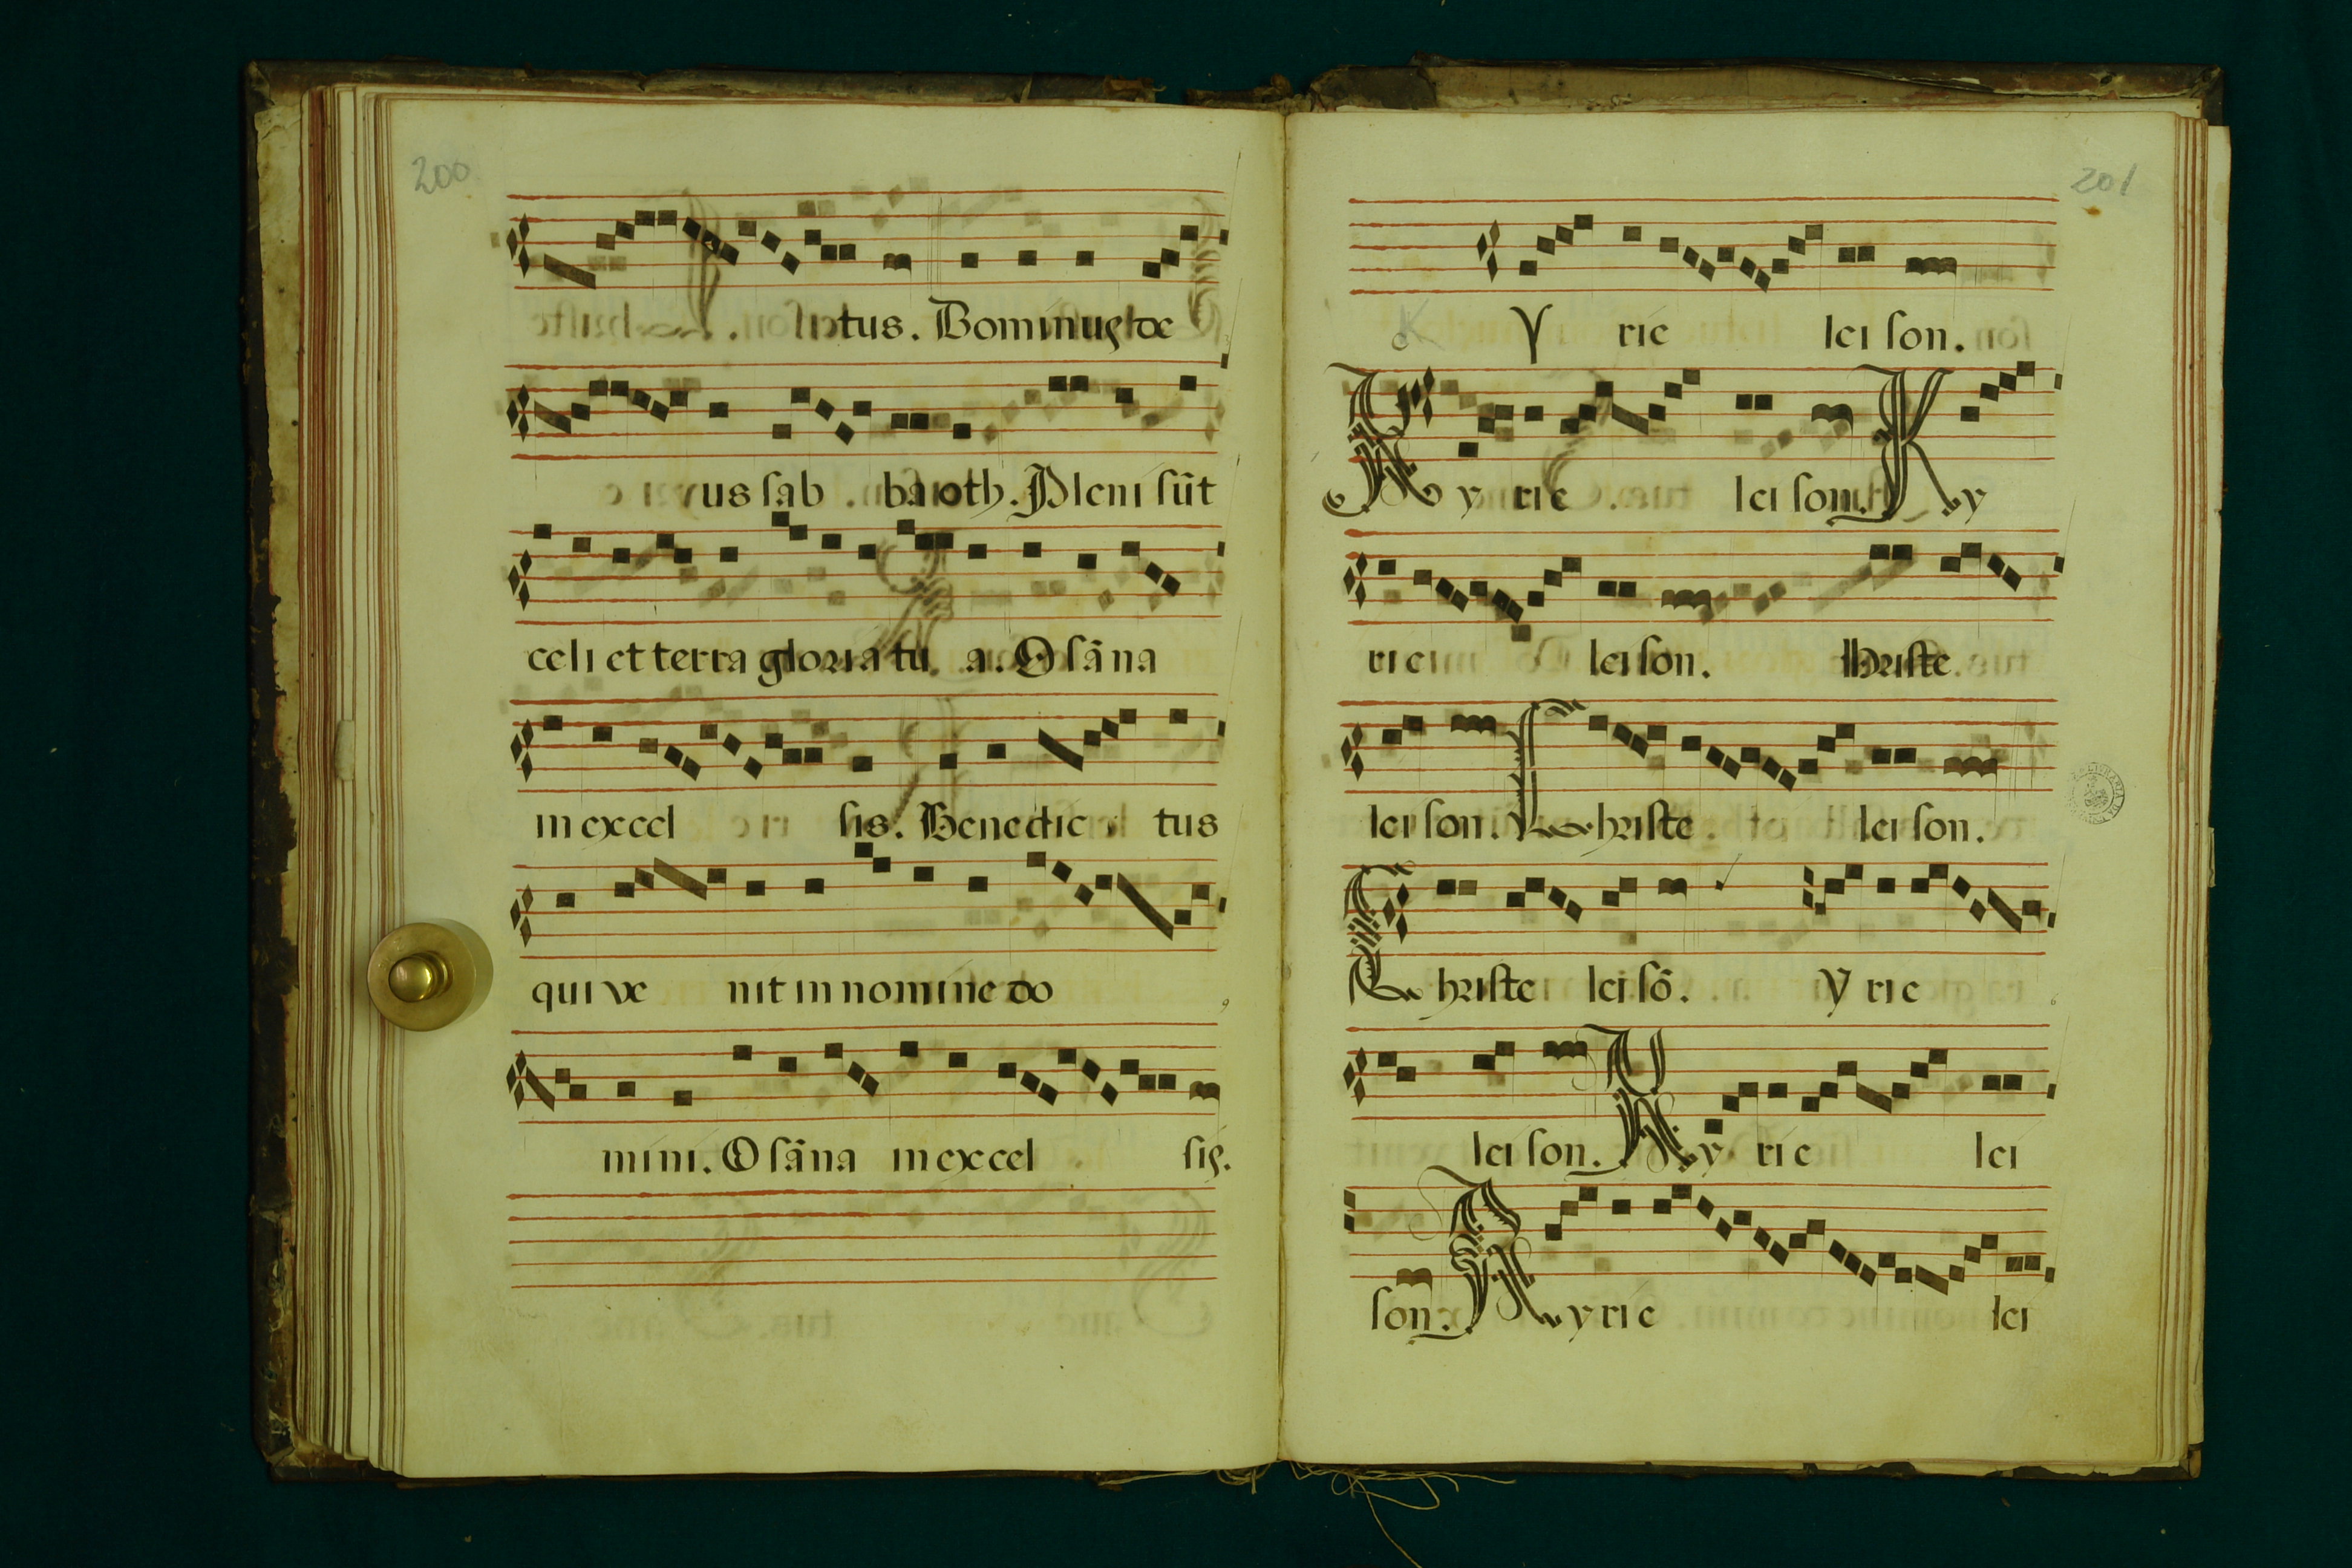 200
tus. Dominus de
us sab ba oth. Pleni sūt
celi et terra gloria tu a. O sāna
in excel sis. Benedic tus
qui ve nit in nomine do
mini. O sāna in excel sis.
201
K y rie lei son.
Ky rie lei son. Ky
rie lei son. hriste
lei son. Christe lei son.
Christe lei sō. y rie
lei son. Ky rie lei
son. Kyrie lei